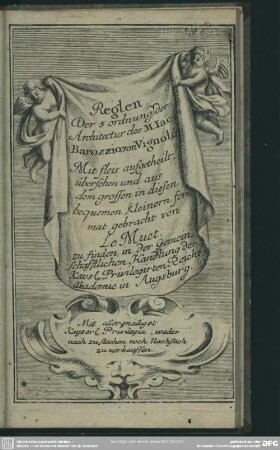 Reglen
Der 5 ordnung der
Architectur des M. Iac.
Barozzio von Vignola
Mit fleis aufgetheilt,
übersehen und aus
dem grossen in diesen
bequemen kleinern for
mat gebracht von
Le Muet.
zu finden in der Gemein
schafftlichen Handlung der
Kaysl. Privilegirten Reichs
Akademie in Augsburg.
Mit allergnädigst.
Kayserl. Privilegia, weder
nach zustechen noch Nachstich
zu verkauffen.